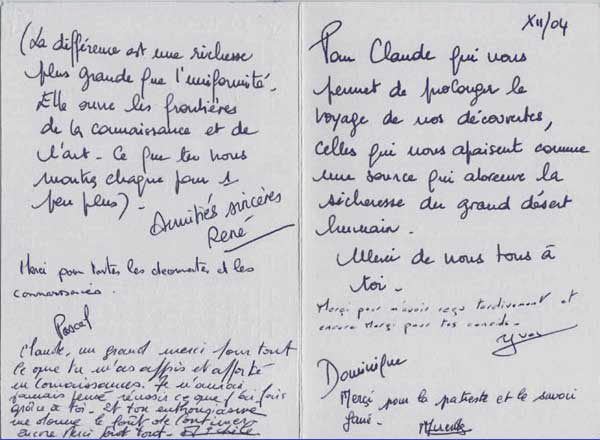 (La différence est une richesse
plus grande que l'uniformité.
Elle ouvre les frontières
de la connaissance et de
l'art. Ce que tu nous
montres chaque jour 1
peu plus).
Amitiés sincères
René
Merci pour toutes les et les
connaissances.
Pascal
Claude, un grand merci pour tout
ce que tu m'as appris et apporté
en connaissances. Je n'aurais
jamais pensé réussir ce que j'ai fais
grâce à toi. et ton enthousiasme
me donne le goût de continuer
encore Merci pour tout.
XII/04
Pour Claude qui nous
permet de prolonger le
voyage de nos découvertes,
celles qui nous apaisent comme
une source qui abreuve la
sécheresse du grand désert
humain.
Merci de nous tous à
toi.
Merçi pour m'avoir reçu tardivement et
encore Merçi pour tes conseils.
Yves
Dominique
Merçi pour la patiente et le savoir
faire.